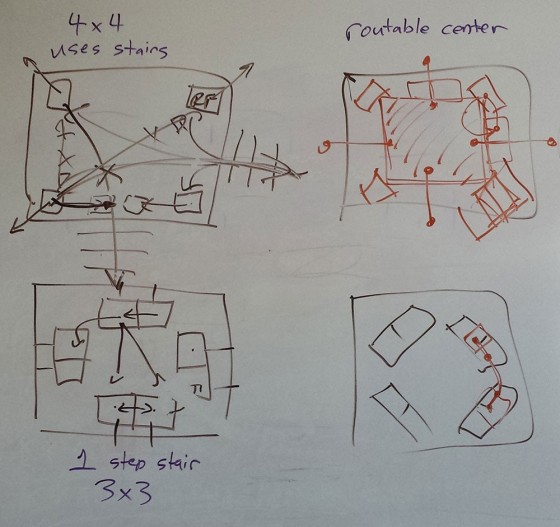 4 x 4
uses stairs
routable center
RF
1 step stair
3x3